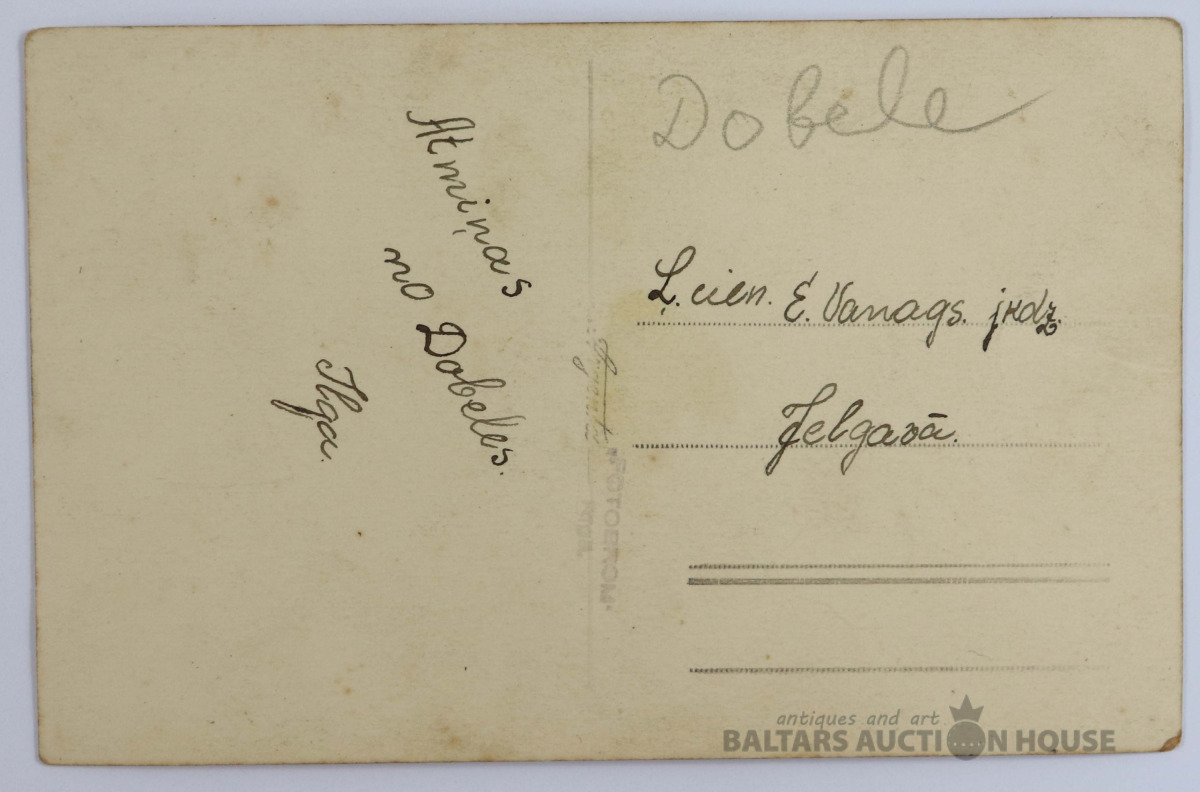 Dobele
Atmiņas
no Dobeles.
Ilga.
Ļ. cien. E. Vanags. jkdz.
Jelgavā.
antiques and art
BALTARS AUCTION HOUSE